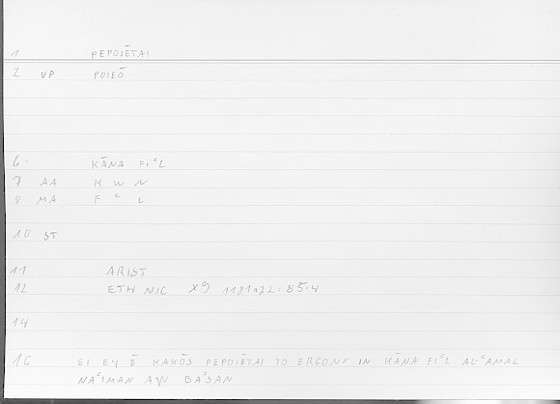 1 PEPOIĒTAI
2 VP POIEŌ
6 KĀNA FIʿL
7 AA K W N
8 MA F ʿ L
10 ST
11 ARIST
12 ETH NIC X9 1181a22: 85.4
14
16 EI EY Ē KAKŌS PEPOIĒTAI TO ERGON IN KĀNA FIʿL AL-ʿAMAL
NAʿIMAN AW BAʾSAN